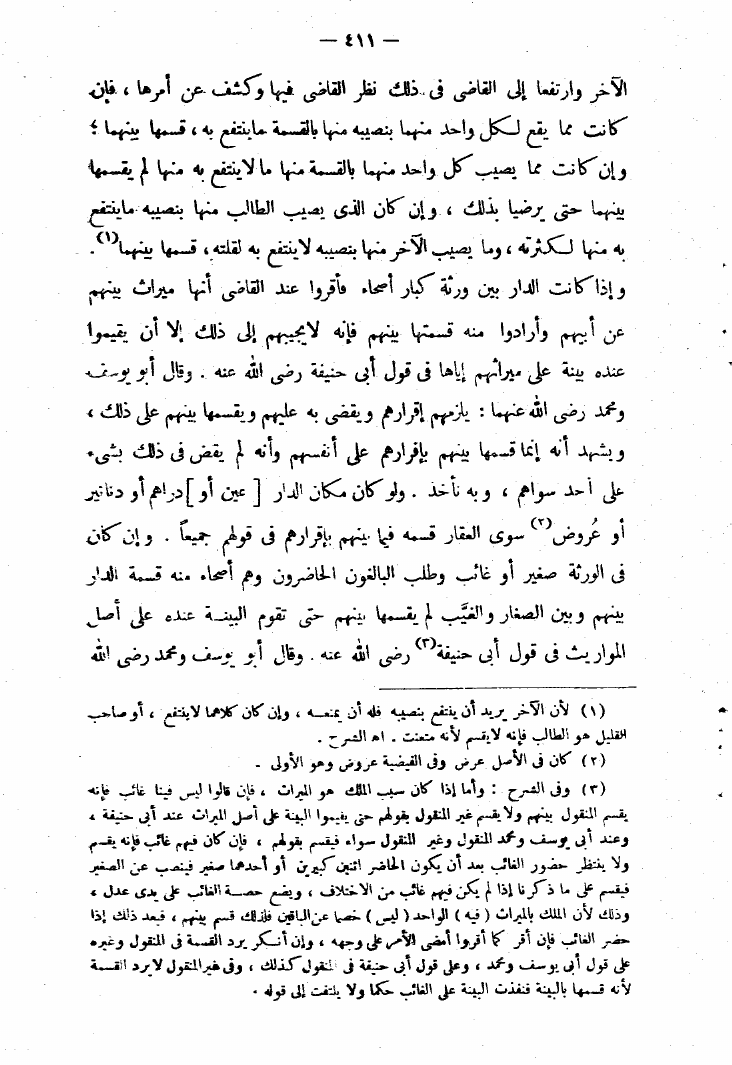 — ٤١١ —
الآخر وارتفعا إلى القاضى فى ذلك نظر القاضى فيها وكشف عن أمرها ، فإن
كانت مما يقع لكل واحد منهما بنصيبه منها بالقسمة ماينتفع به ، قسمها بينهما ؛
وإن كانت مما يصيب كل واحد منهما بالقسمة منها ما لاينتفع به منها لم يقسمها
بينهما حتى يرضيا بذلك ، وإن كان الذى يصيب الطالب منها بنصيبه ماينتفع
به منها لكثرته ، وما يصيب الآخر منها بنصيبه لاينتفع به لقلته ، قسمها بينهما(١) .
وإذا كانت الدار بين ورثة كبار أصحاء فأقروا عند القاضى أنها ميراث بينهم
عن أبيهم وأرادوا منه قسمتها بينهم فإنه لايجيبهم إلى ذلك إلا أن يقيموا
عنده بينة على ميراثهم إياها فى قول أبى حنيفة رضى الله عنه . وقال أبو يوسف
ومحمد رضى الله عنهما : يلزمهم إقرارهم ويقضى به عليهم ويقسمها بينهم على ذلك ،
ويشهد أنه إنما قسمها بينهم بإقرارهم على أنفسهم وأنه لم يقض فى ذلك بشىء
على أحد سواهم ، وبه نأخذ . ولو كان مكان الدار [ عين أو ] دراهم أو دنانير
أو عُروض(٢) سوى العقار قسمه فيما بينهم بإقرارهم فى قولهم جميعاً . وإن كان
فى الورثة صغير أو غائب وطلب البالغون الحاضرون وهم أصحاء منه قسمة الدار
بينهم وبين الصغار والغيَّب لم يقسمها بينهم حتى تقوم البينة عنده على أصل
المواريث فى قول أبى حنيفة(٣) رضى الله عنه . وقال أبو يوسف ومحمد رضى الله
(١) لأن الآخر يريد أن ينتفع بنصيبه فله أن يمنعه ، وإن كان كلاهما لاينتفع ، أو صاحب
القليل هو الطالب فإنه لايقسم لأنه متعنت . اه الشرح .
(٢) كان فى الأصل عرض وفى الفيضية عروض وهو الأولى .
(٣) وفى الشرح : وأما إذا كان سبب الملك هو الميراث ، فإن قالوا ليس فينا غائب فإنه
يقسم المنقول بينهم ولا يقسم غير المنقول بقولهم حتى يقيموا البينة على أصل الميراث عند أبى حنيفة ،
وعند أبى يوسف ومحمد المنقول وغير المنقول سواء فيقسم بقولهم ، فإن كان فيهم غائب فإنه يقسم
ولا ينتظر حضور الغائب بعد أن يكون الحاضر اثنين كبيرين أو أحدهما صغير فينصب عن الصغير
فيقسم على ما ذكرنا إذا لم يكن فيهم غائب من الاختلاف ، ويضع حصة الغائب على يدى عدل ،
وذلك لأن الملك بالميراث ( فيه ) الواحد ( ليس ) خصما عن الباقين فلذلك قسم بينهم ، فبعد ذلك إذا
حضر الغائب فإن أقر كما أقروا أمضى الأمر على وجهه ، وإن أنكر يرد القسمة فى المنقول وغيره
على قول أبى يوسف ومحمد ، وعلى قول أبى حنيفة فى المنقول كذلك ، وفى غير المنقول لا يرد القسمة
لأنه قسمها بالبينة فنفذت البينة على الغائب حكما ولا يلتفت إلى قوله .